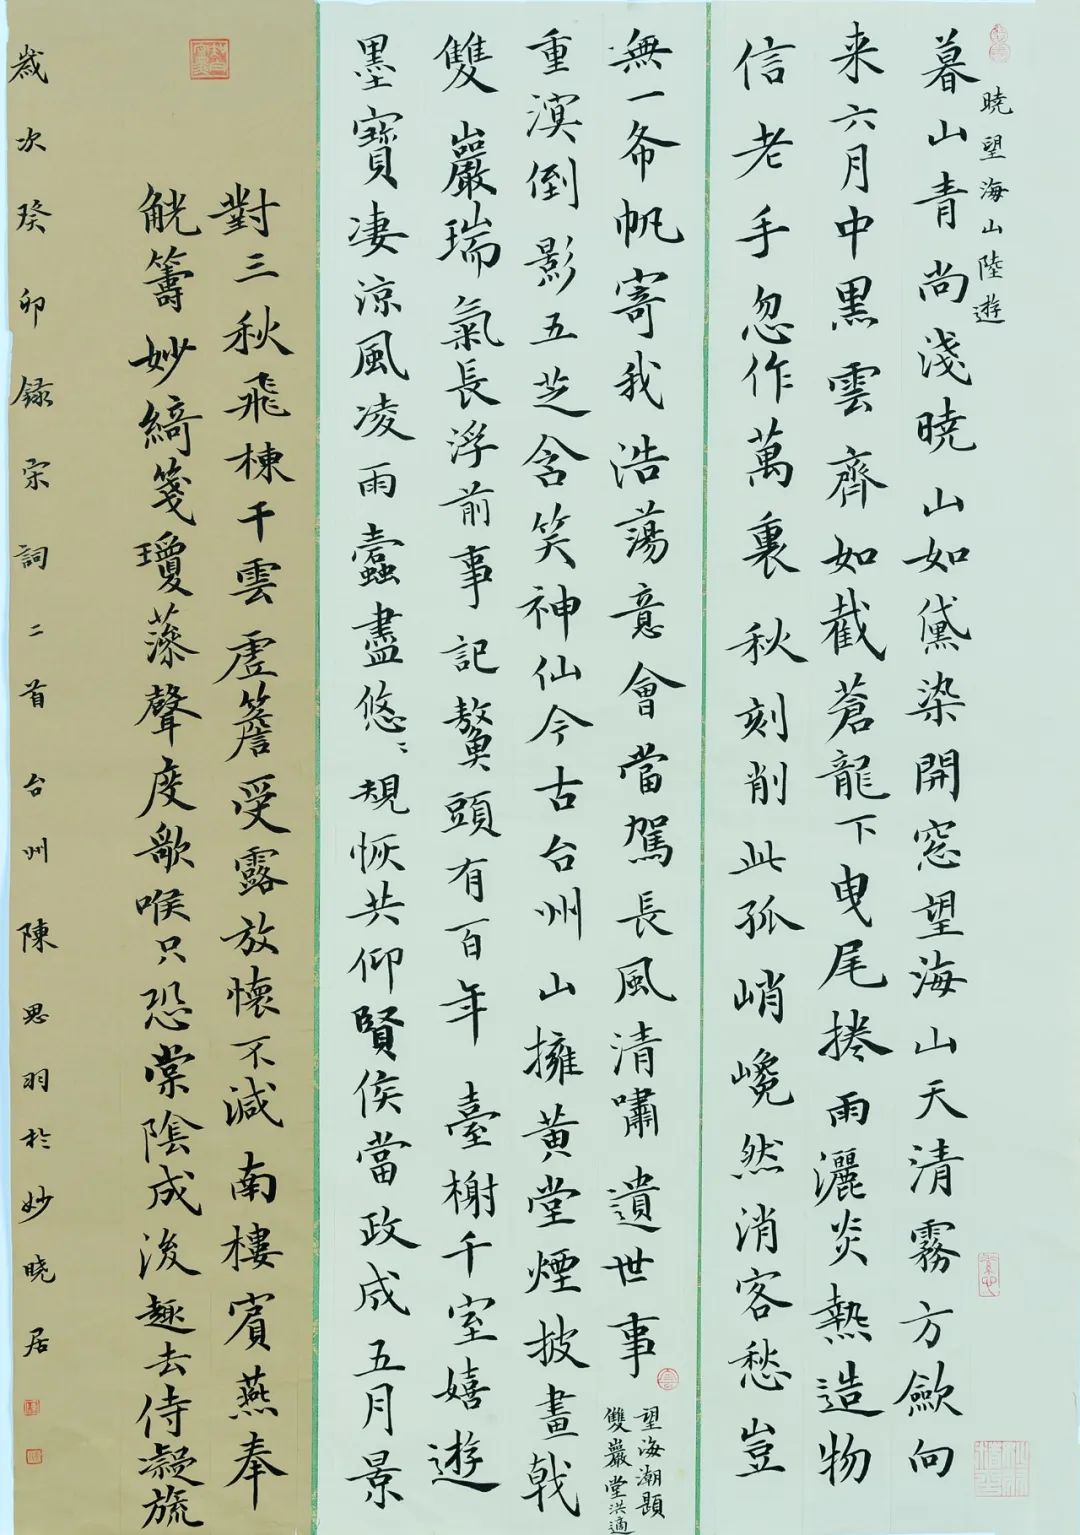 曉望海山陸遊
暮山青尚淺曉山如黛染開窓望海山天清霧方歛向
来六月中黑雲齊如截蒼龍下曳尾捲雨灑炎熱造物
信老手忽作萬裏秋刻削此孤峭巉然消客愁豈
無一布帆寄我浩蕩意會當駕長風清嘯遺世事
望海潮題
雙巖堂洪適
重溟倒影五芝含笑神仙今古台州山擁黄堂煙披畫戟
雙巖瑞氣長浮前事記鼇頭有百年臺榭千室嬉遊
墨寶凄涼風凌雨蠹盡悠〻規恢共仰賢侯當政成五月景
對三秋飛棟干雲虚簷受露放懷不減南樓賓燕奉
觥籌妙綺箋瓊藻聲度歌喉只恐棠陰成後趣去侍凝旒
歲次癸卯録宋詞二首台州陳思羽於妙曉居